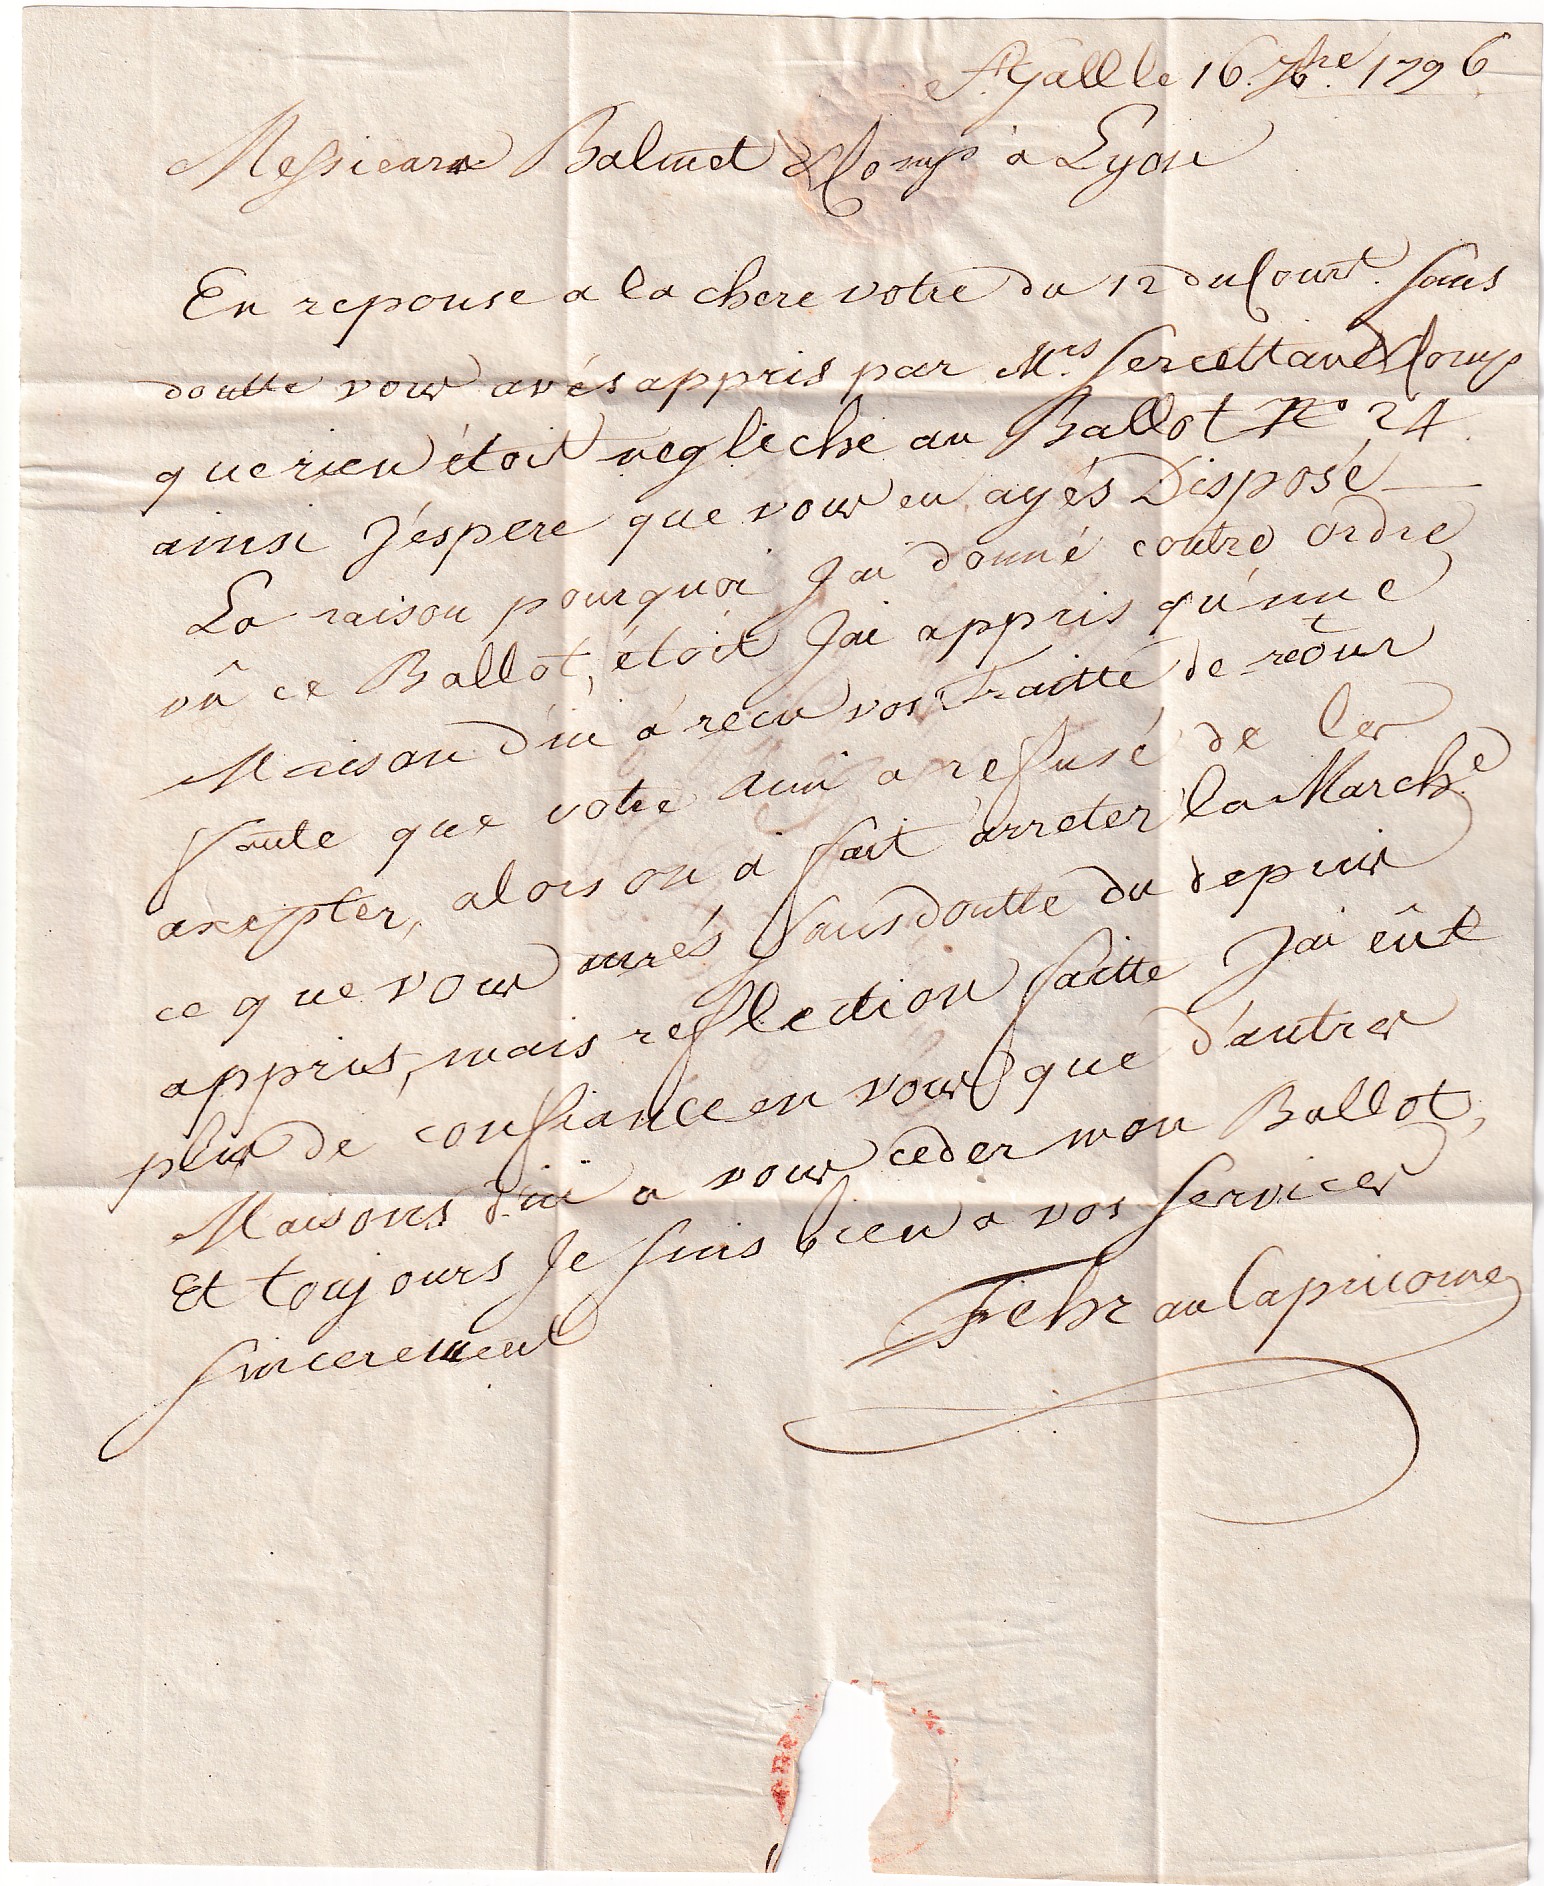 St. Gall le 16. 7bre. 1796
Messieurs Balmet & Comp à Lyon
En reponse a la chere votre du 12 du Court. sans
doutte vous avés appris par Mrs. Sercettan & Comp
que rien étoit negliche au Ballot No 24.
ainsi J'éspere que vous en ayés Disposé —
La raison pourquoi J'ai donné contre ordre
vû ce Ballot, étoit J'ai appris qu'une
Maison d'ici á recu vos Traitte de retour
faute que votre ami a refusé de les
axepter, alors on a fait árreter la Marche.
ce que vous aurés sans doutte du depuis
appris, mais reflection faitte J'ai eût
plus de confiance en vous que d'autres
Maisons d'ici a vous ceder mon Ballot,
Et toujours Je suis bien a vos services
sincerement
Fehr au Capricorne